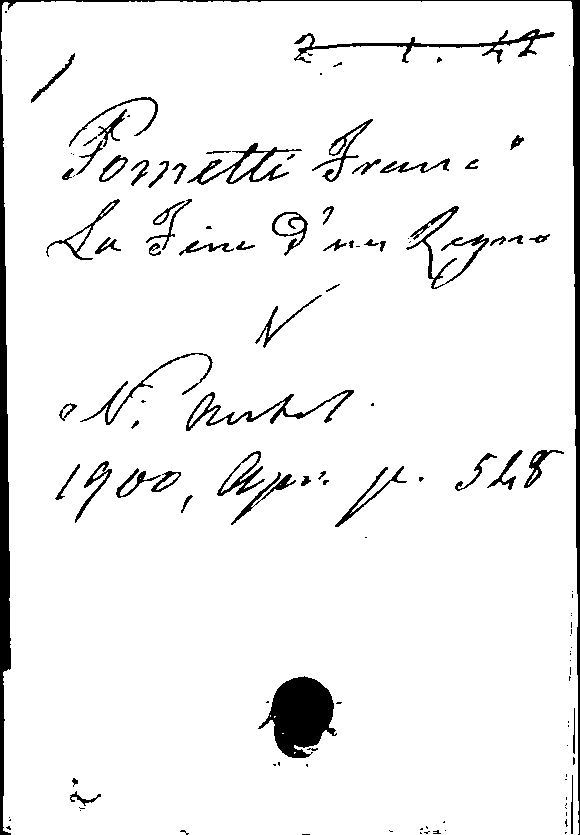 2. 1. 42
Pometti Franc°
La Fine d'un Regno
N. Antol.
1900, Apr. p. 548